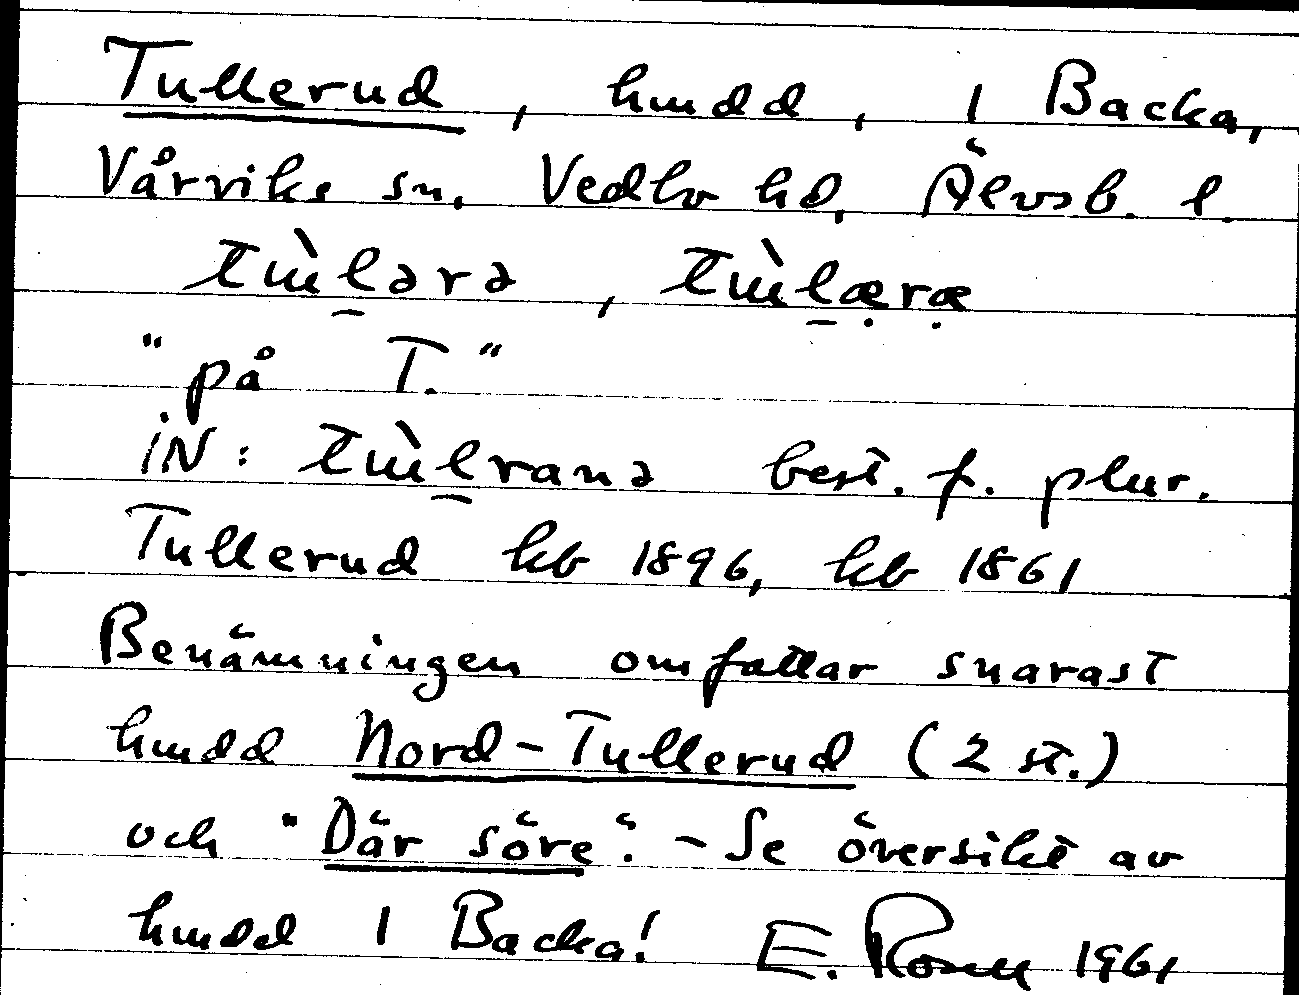 Tullerud, hmdd, 1 Backa,
Vårviks sn. Vedbo hd, Älvsb. l.
tɯ̀l̠ərə, tɯ̀l̠æ̣ræ̣
"på T."
iN: tɯ̀l̠ranə best. f. plur.
Tullerud kb 1896, kb 1861
Benämningen omfattar snarast
hmdd Nord-Tullerud (2 st.)
och "Där söre". - Se översikt av
hmdd 1 Backa! E. 1961